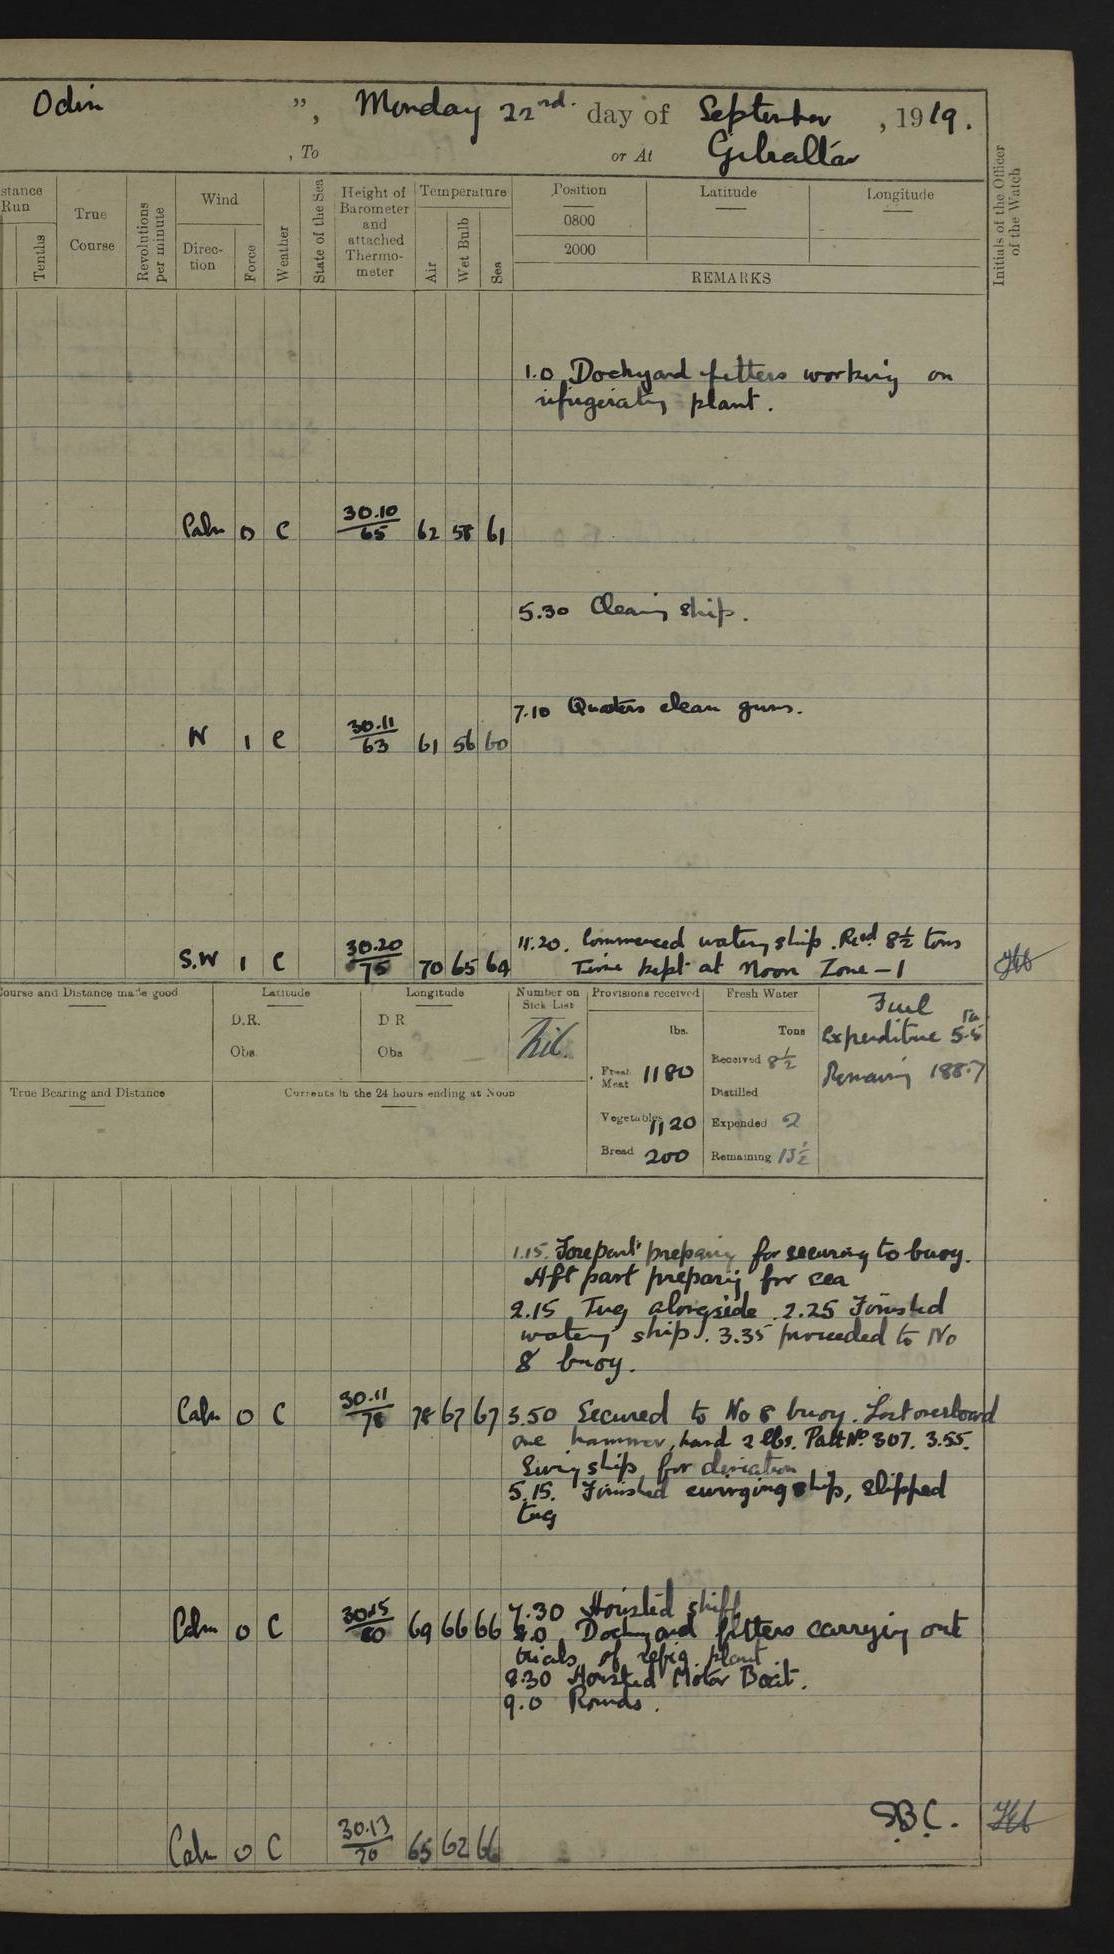 Odin ", Monday 22nd. day of September, 1919.
, To or At Gibraltar
stance Run
Tenths
True Course
Revolutions per minute
Wind
Direc-tion
Force
Weather
State of the Sea
Height of Barometer and attached Thermo-meter
Temperature
Air
Wet Bulb
Sea
Position Latitude Longitude
0800
2000
REMARKS
Initials of the Officer of the Watch
1.0 Dockyard fitters working on
refrigerating plant.
Calm 0 C 30.10/65 62 58 61
5.30 Cleaning ship.
7.10 Quarters clean guns.
W 1 C 30.11/63 61 56 60
11.20. Commenced watering ship. Recd 8½ tons
S.W 1 C 30.20/75 70 65 64 Time kept at Noon Zone -1
Course and Distance made good
Latitude
D.R.
Obs
Longitude
D R
Obs
Number on Sick List
Nil.
Provisions received
lbs.
Fresh Meat 1180
Vegetables 1120
Bread 200
Fresh Water
Tons
Received 8½
Distilled
Expended 2
Remaining 13½
Fuel
Expenditure 5.5
Remaining 188.7
True Bearing and Distance
Currents in the 24 hours ending at Noon
1.15. Forepart preparing for securing to buoy.
Aft part preparing for sea
2.15 Tug alongside. 2.25 Finished
watering ship. 3.35 proceeded to No
8 buoy.
Calm 0 C 30.11/78 78 67 67 3.50 Secured to No 8 buoy. Lost overboard
one hammer, hand 2 lbs. Patt No. 307. 3.55.
Swing ship for deviation
5.15. Finished swinging ship, slipped
tug
7.30 Hoisted skiff
Calm 0 C 30.15/80 69 66 66 8.0 Dockyard fitters carrying out
trials of refrig. plant
8.30 Hoisted Motor Boat.
9.0 Rounds.
S.B.C.
Calm 0 C 30.13/70 65 62 66